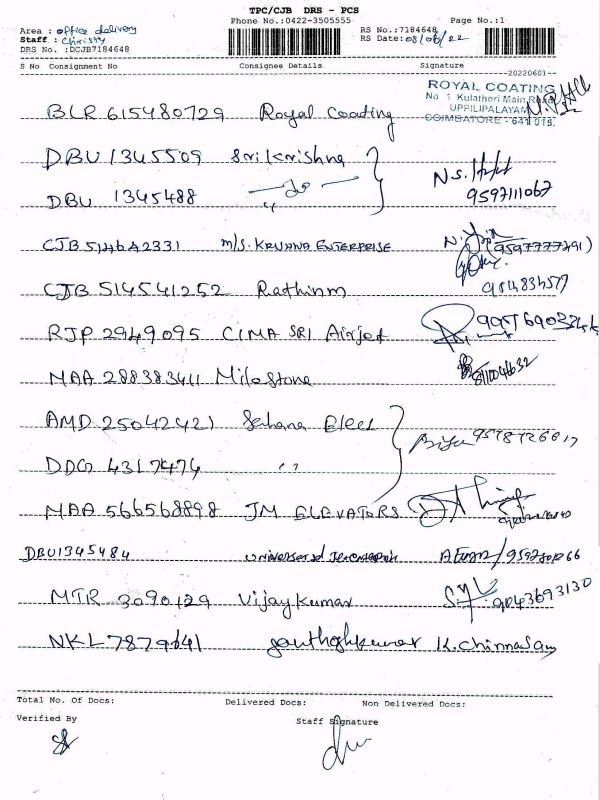 TPC/CJB DRS - PCS
Phone No.:0422-3505555 Page No.:1
Area : office delivery RS No.:7184648
Staff : Christy RS Date:08/06/22
DRS No. :DCJB7184648
S No Consignment No Consignee Details Signature
--20220601--
ROYAL COATING
No 1 Kulatheri Main Road
UPPILIPALAYAM
COIMBATORE - 641 015.
BLR 615480729 Royal Coating
DBU 1345509 Srikrishna
DBU 1345488 -do-
9597111067
CJB 514642331 M/S. KRVANA ENTERPRISE
CJB 514541252 Rathinm
RJP 2949095 CIMA SRI Airjet
MAA 288383411 Milestone
AMD 25042421 Sahana Elect
DDG 4317474 "
MAA 566568898 JM ELEVATORS
DBU1345484
MTR 3090129 Vijay Kumar 9043693130
NKL 7879641 K. Chinnasamy
Total No. Of Docs: Delivered Docs: Non Delivered Docs:
Verified By Staff Signature